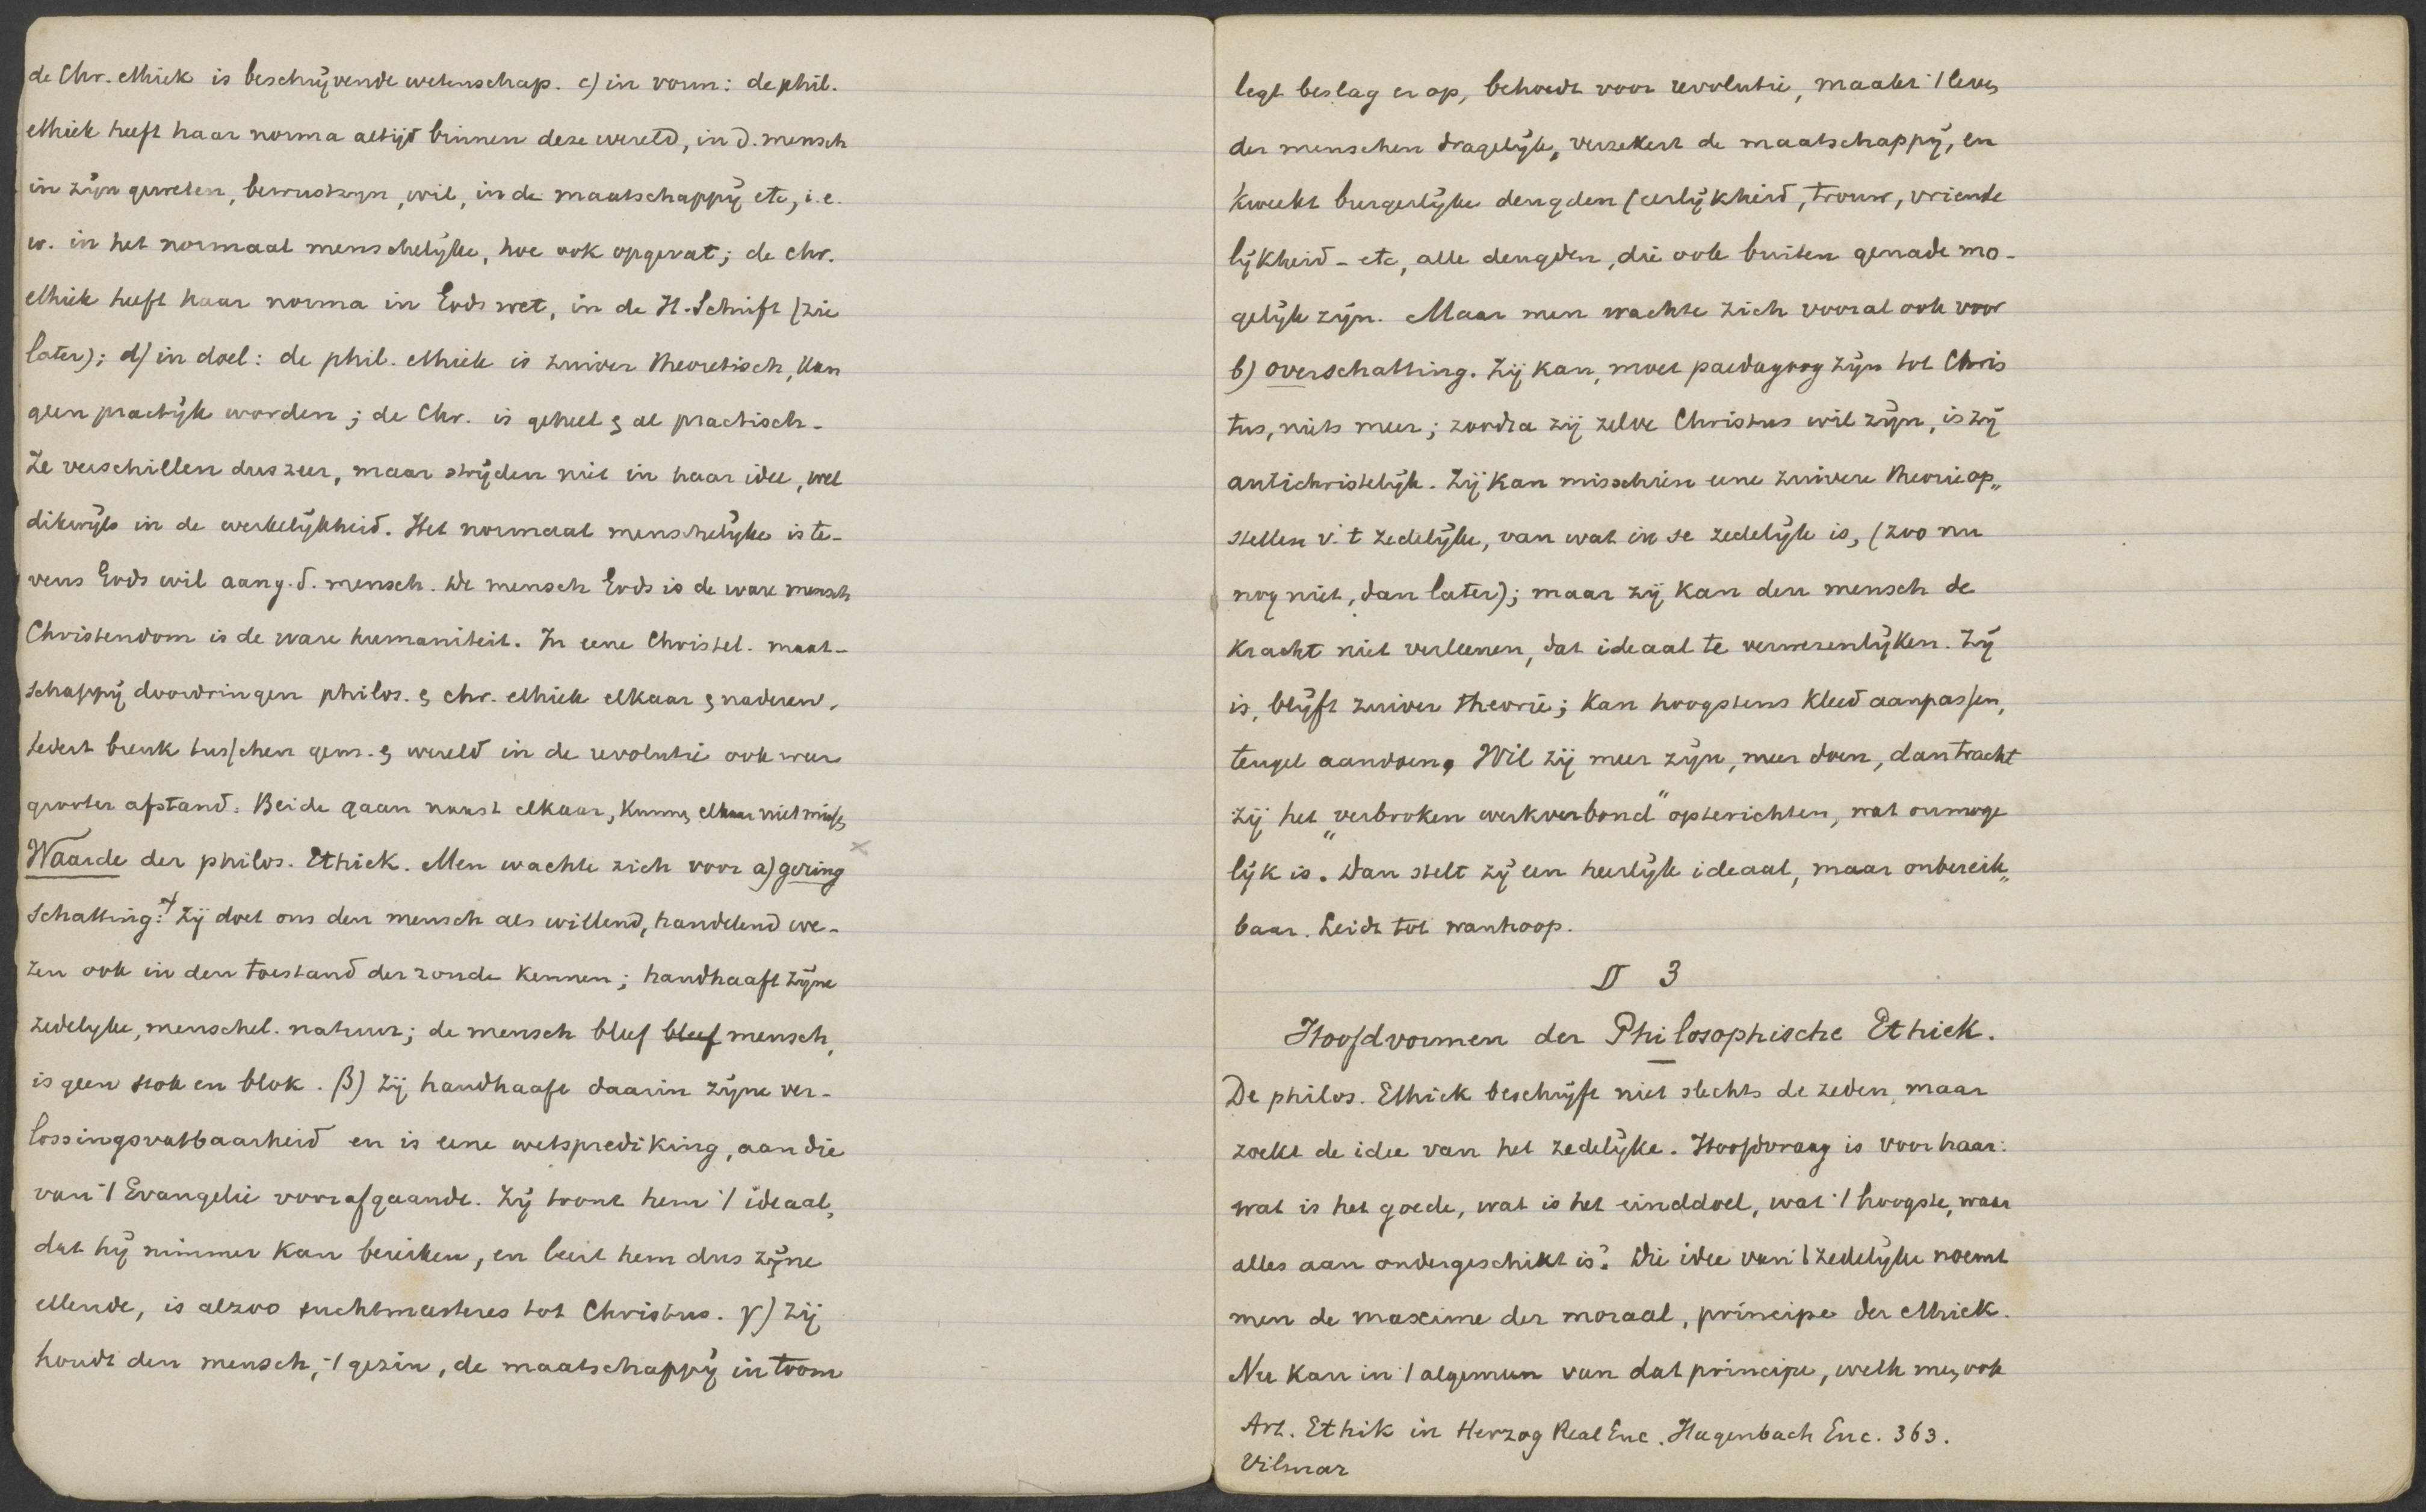 de Chr. ethiek is beschrijvende wetenschap. c) in vorm: de phil.
ethiek heeft haar norma altijd binnen deze wereld, in d. mensch
in zijn geweten, bewustzijn, wil, in de maatschappij etc, i.e.
w. in het normaal menschelijke, hoe ook opgevat; de chr.
ethiek heeft haar norma in Gods wet, in de H. Schrift (zie
later); d) in doel: de phil. ethiek is zuiver theoretisch, kan
geen practijk worden; de Chr. is geheel & al practisch.
Ze verschillen dus zeer, maar strijden niet in haar idee, wel
dikwijls in de werkelijkheid. Het normaal menschelijke is te-
vens Gods wil aang. d. mensch. De mensch Gods is de ware mensch
Christendom is de ware humaniteit. In eene Christel. maat-
schappij doordringen philos. & chr. ethiek elkaar & naderen.
Sedert breuk tusschen gem. & wereld in de revolutie ook weer
grooter afstand. Beide gaan naast elkaar, kunnen elkaar niet missen
Waarde der philos. Ethiek. Men wachte zich voor a) gering
schatting: Zij doet ons den mensch als willend, handelend we-
zen ook in den toestand der zonde kennen; handhaaft zijne
zedelyke, menschel. natuur; de mensch bleef bleef mensch,
is geen stok en blok. β) Zij handhaaft daarin zijne ver-
lossingsvatbaarheid en is eene wetsprediking, aan die
van 't Evangelie voorafgaande. Zij toont hem 't ideaal,
dat hij nimmer kan bereiken, en leert hem dus zijne
ellende, is alzoo tuchtmeesteres tot Christus. γ) Zij
houdt den mensch, 't gezin, de maatschappij in toom
legt beslag er op, behoedt voor revolutie, maakt 't leven
der menschen dragelijk, verzekert de maatschappij, en
kweekt burgerlijke deugden (eerlijkheid, trouw, vriende
lijkheid - etc, alle deugden, die ook buiten genade mo-
gelijk zijn. Maar men wachte zich vooral ook voor
b) overschatting. Zij kan, moet paedagoog zijn tot Chris
tus, niets meer; zoodra zij zelve Christus wil zijn, is zij
antichristelijk. Zij kan misschien eene zuivere theorie op„
stellen v. 't zedelijke, van wat in se zedelijk is, (zoo nu
nog niet, dan later); maar zij kan den mensch de
kracht niet verleenen, dat ideaal te verwezenlijken. Zij
is, blijft zuiver theorie; kan hoogstens kleed aanpassen,
teugel aandoen. Wil zij meer zijn, meer doen, dan tracht
zij het „verbroken werkverbond" opterichten, wat onmoge
lijk is. Dan stelt zij een heerlijk ideaal, maar onbereik„
baar. Leidt tot wanhoop.
§ 3
Hoofdvormen der Philosophische Ethiek.
De philos. Ethiek beschrijft niet slechts de zeden, maar
zoekt de idee van het zedelijke. Hoofdvraag is voor haar:
wat is het goede, wat is het einddoel, wat 't hoogste, waar
alles aan ondergeschikt is? Die idee van 't zedelijke noemt
men de maxime der moraal, principe der ethiek.
Nu kan in 't algemeen van dat principe, welk men ook
Art. Ethik in Herzog Real Enc. Hagenbach Enc. 363.
Vilmar